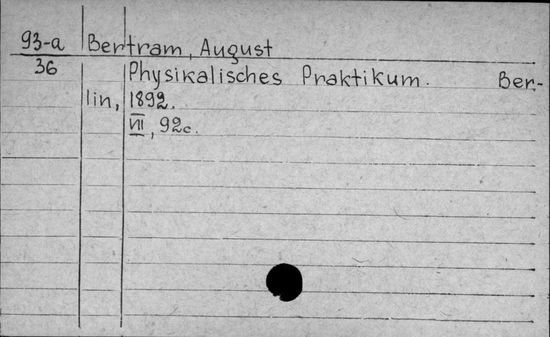 93-a Bertram, August
36 Physikalisches Praktikum. Ber-
lin, 1892.
VII, 92c.